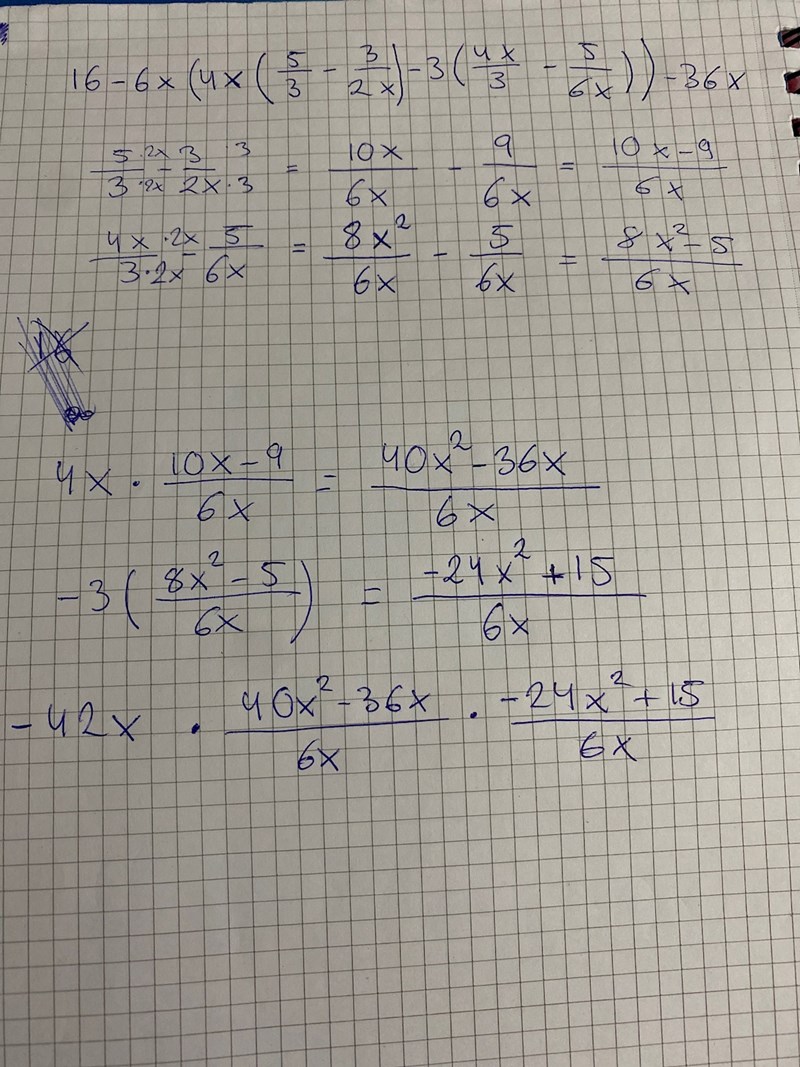 16 - 6x (4x (5/3 - 3/2x) - 3 (4x/3 - 5/6x)) - 36x
5·2x/3·2x - 3·3/2x·3 = 10x/6x - 9/6x = 10x-9/6x
4x·2x/3·2x - 5/6x = 8x²/6x - 5/6x = 8x²-5/6x
4x · 10x-9/6x = 40x²-36x/6x
-3 (8x²-5/6x) = -24x²+15/6x
-42x · 40x²-36x/6x · -24x²+15/6x